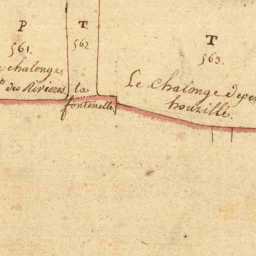 P
561.
chalonge
des Rivieres
T
562
la
fontenelle
T
563.
Le Chalonge Depen
houzille